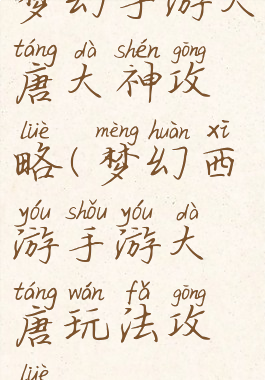 梦幻手游大
táng dà shén gōng
唐大神攻
lüè mèng huàn xī
略(梦幻西
yóu shǒu yóu dà
游手游大
táng wán fǎ gōng
唐玩法攻
lüè